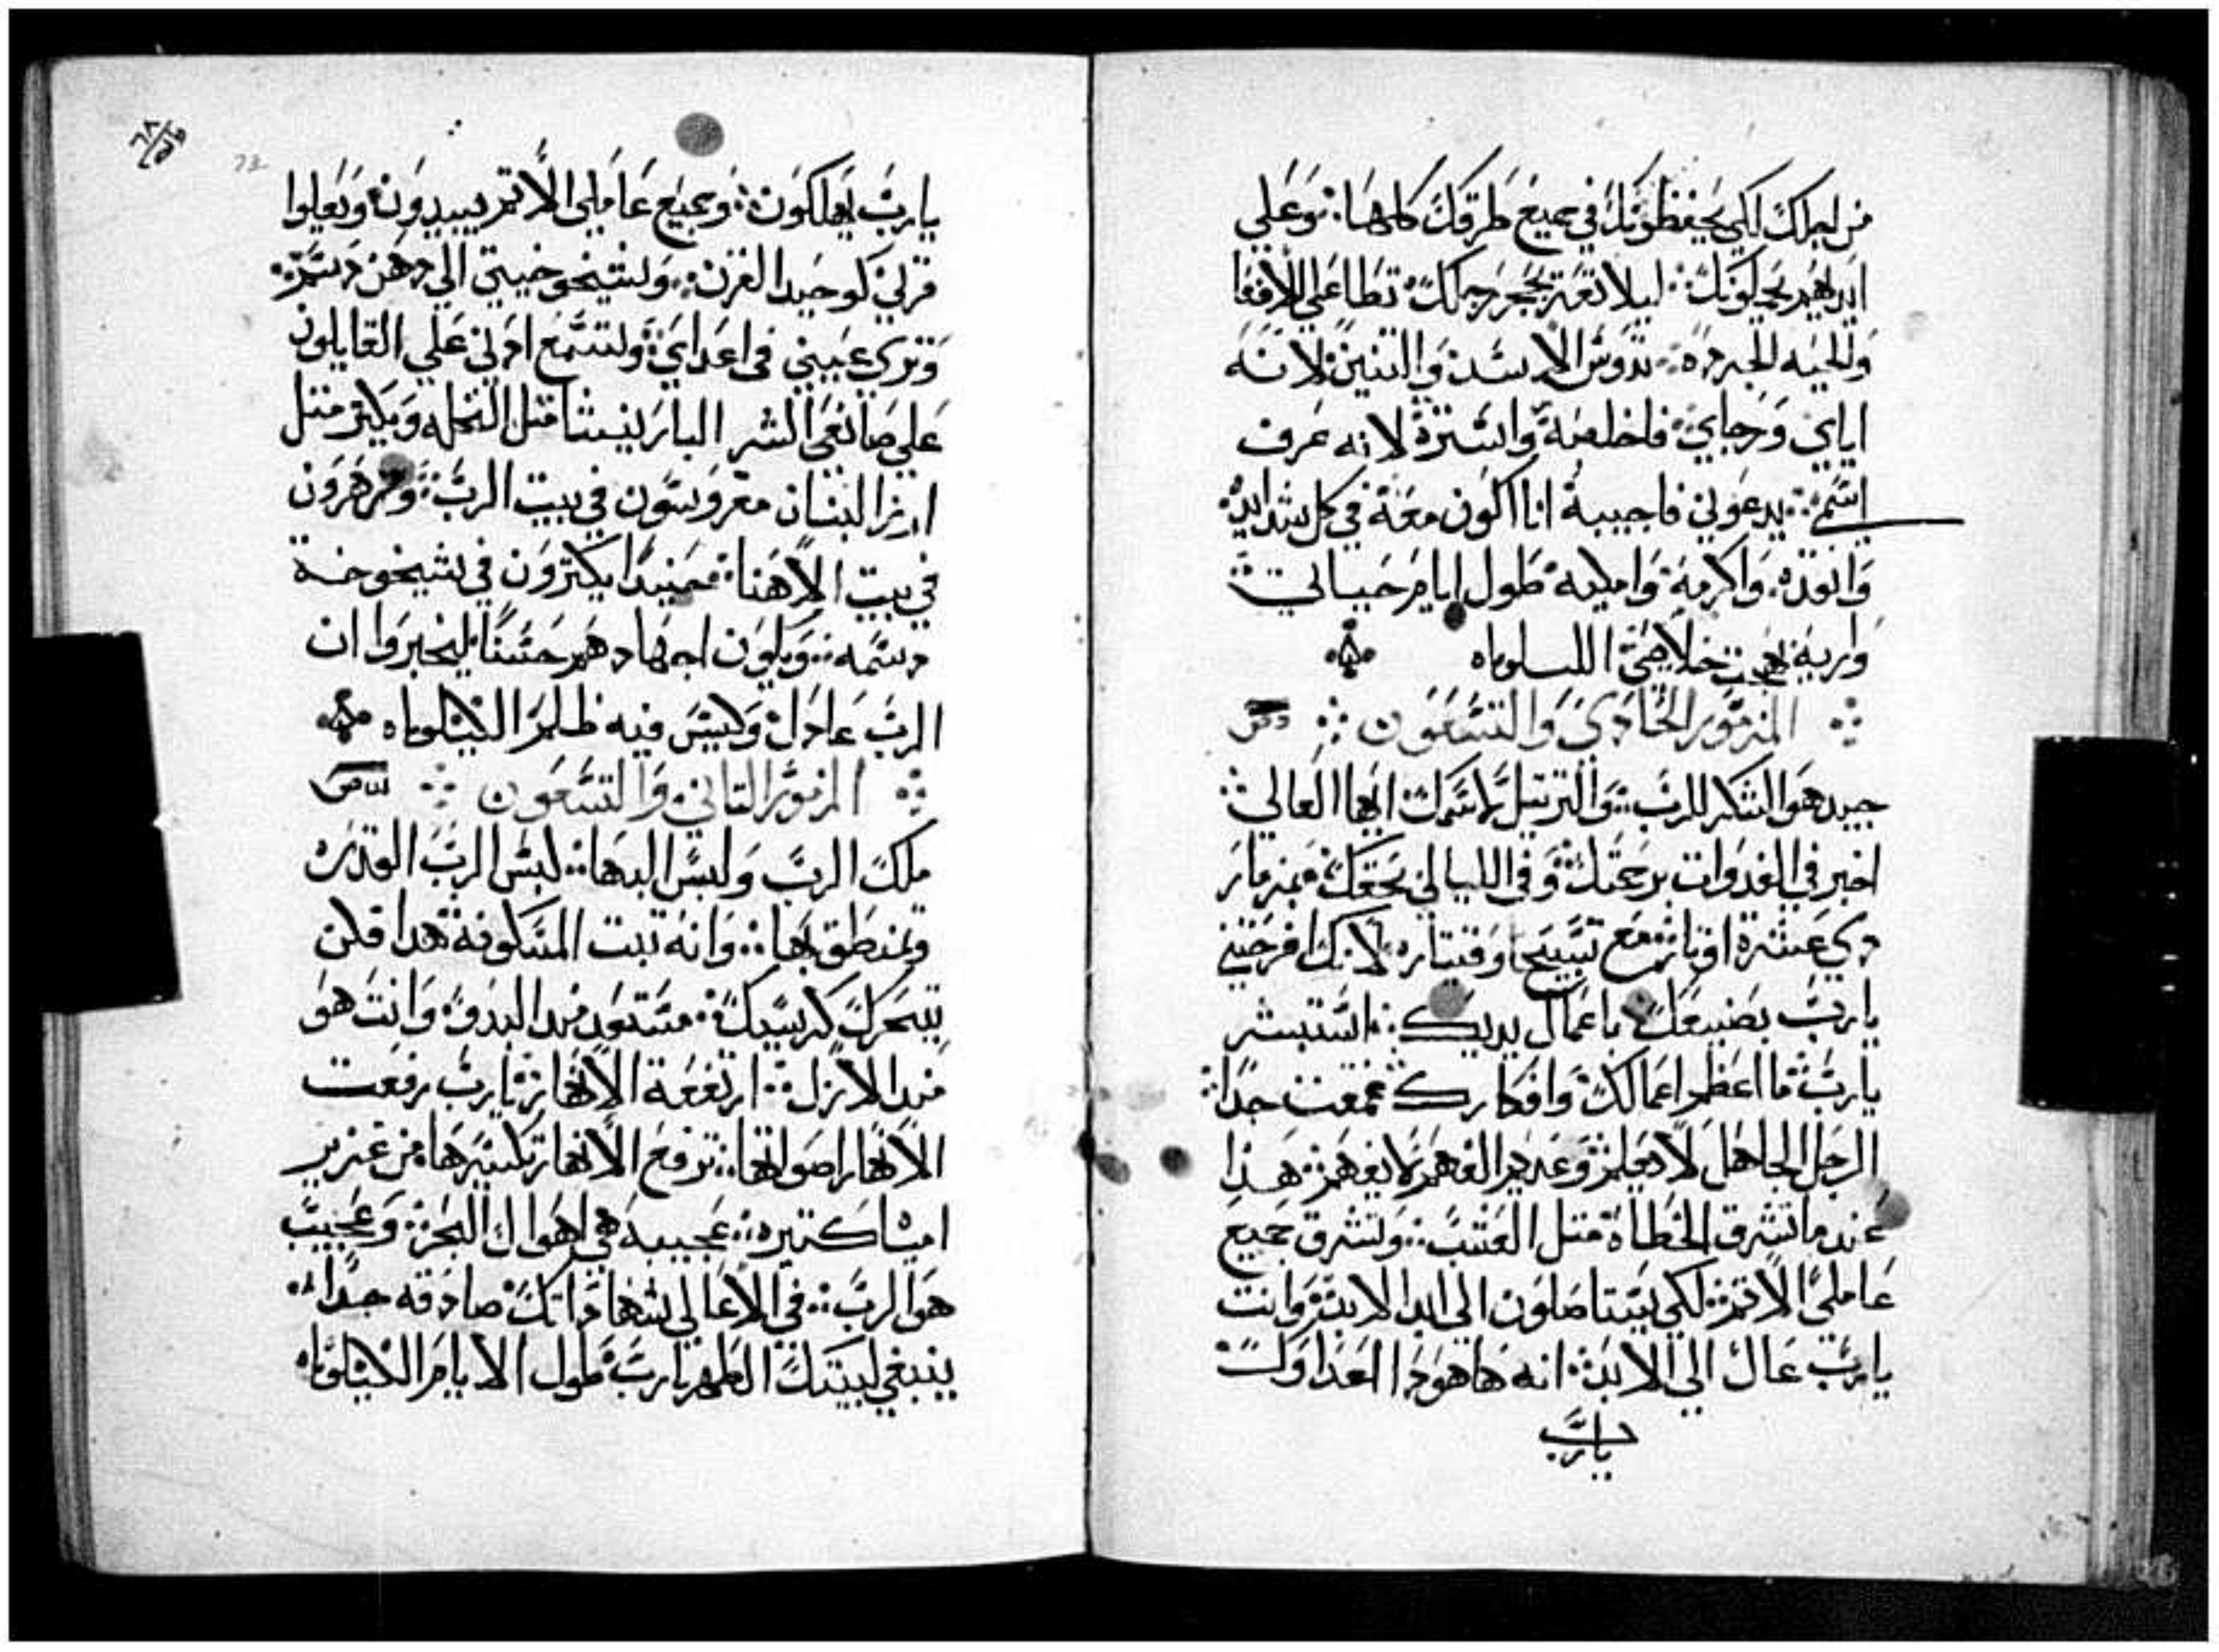 من اجلك لكي يحفظونك في جميع طرقك كلها وعلي
ايديهم يحملونك ليلا تعتر بحجر رجلك تطا علي الافعا
والحيه الجرده تدوس الاسد والتنين لانه
اياي ورجاي فاخلصة واسترة لانه عرف
اسمي يدعوني فاجيبة انا اكون معة في كل شدايد
وانقده واكرمة وامليه طول ايام حياتي
واريه خلاصي الليلوياه
المزمور الحادي والتسعون
جيد هو الشكر للرب والترتيل لاسمك ايها العالي
اخبر في الغدوات برحمتك وفي الليالي بحقك بمزمار
دي عشرة اوتار مع تسبيح وقيتاره لانك افرحتني
يارب بصنيعك باعمال يديك استبشر
يارب ما اعظم اعمالك وافكارك عمقت جدا
الرجل الجاهل لا يعلم وعديم الفهم لا يفهم هذا
عند ما تشرق الخطاه متل العشب وتشرق جميع
عاملي الاتم لكي يستاصلون الي ابد الابد وانت
يارب عال الي الابد انه هاهودا اعداوك
يارب
يارب يهلكون وجميع عاملي الاتم يبيدون ويعلوا
قرني كوحيد القرن وشيخوخيتي الي دهن دسم
وتري عيني في اعداي وتسمع ادني علي القايلون
علي صانعي الشر البار ينشا متل النخله ويكتر متل
ارز لبنان مغروسون في بيت الرب ويزهرون
في بيت الاهنا فمنيدا يكترون في شيخوخة
دسمه ويلون اجهادهم حسنا ليخبروا ان
الرب عادل وليس فيه ظلم الليلوياه
المزمور التاني والتسعون
ملك الرب ولبس البها لبس الرب القدره
وتمنطق بها وانه تبت المسكونة هدا فلن
يتحرك كرسيك مستعد مند البدو وانت هو
مند الازل ارتفعة الانهار يارب رفعت
الانهار اصواتها ترفع الانهار تكسيرها من غزير
امياه كتيره عجيبه هي اهوال البحر وعجيب
هو الرب في الاعالي شهاداتك صادقه جدا
ينبغي لبيتك الطهر يارب طول الايام الليلوياه